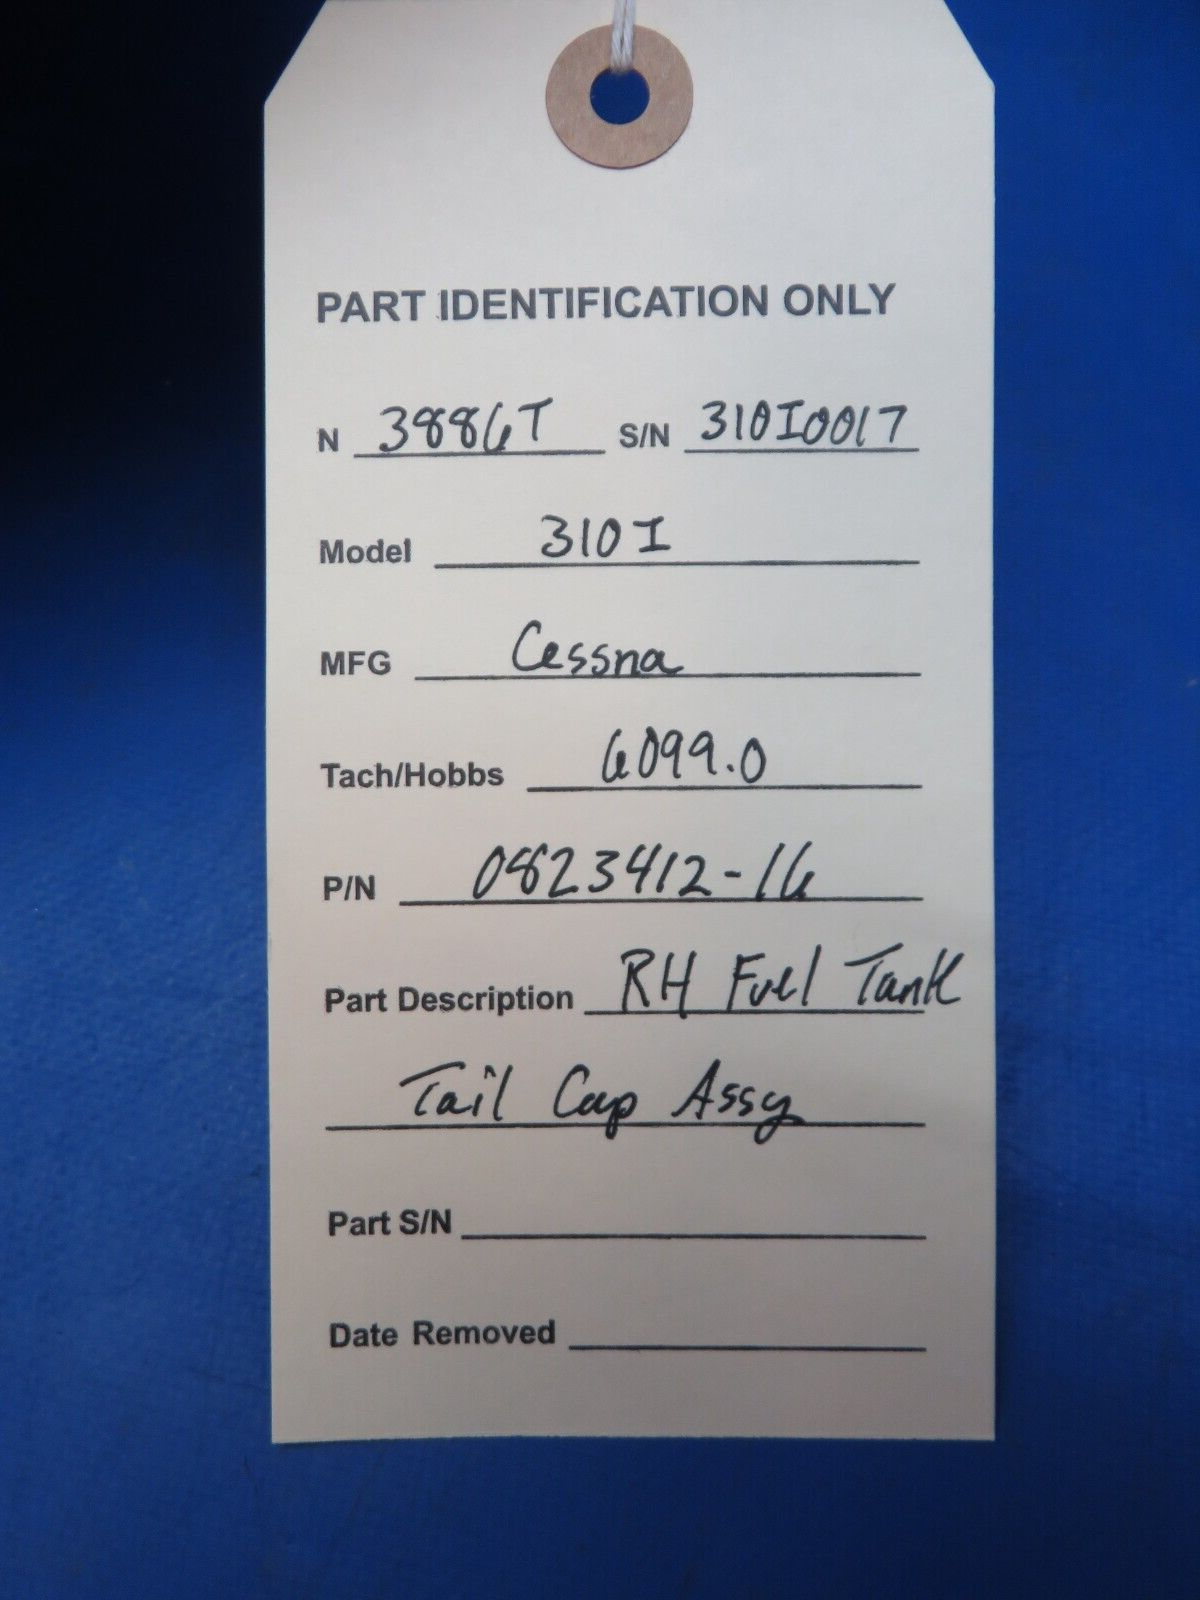 PART IDENTIFICATION ONLY
N 3886T S/N 310I0017
Model 310I
MFG Cessna
Tach/Hobbs 6099.0
P/N 0823412-16
Part Description RH Fuel Tank
Tail Cap Assy
Part S/N
Date Removed